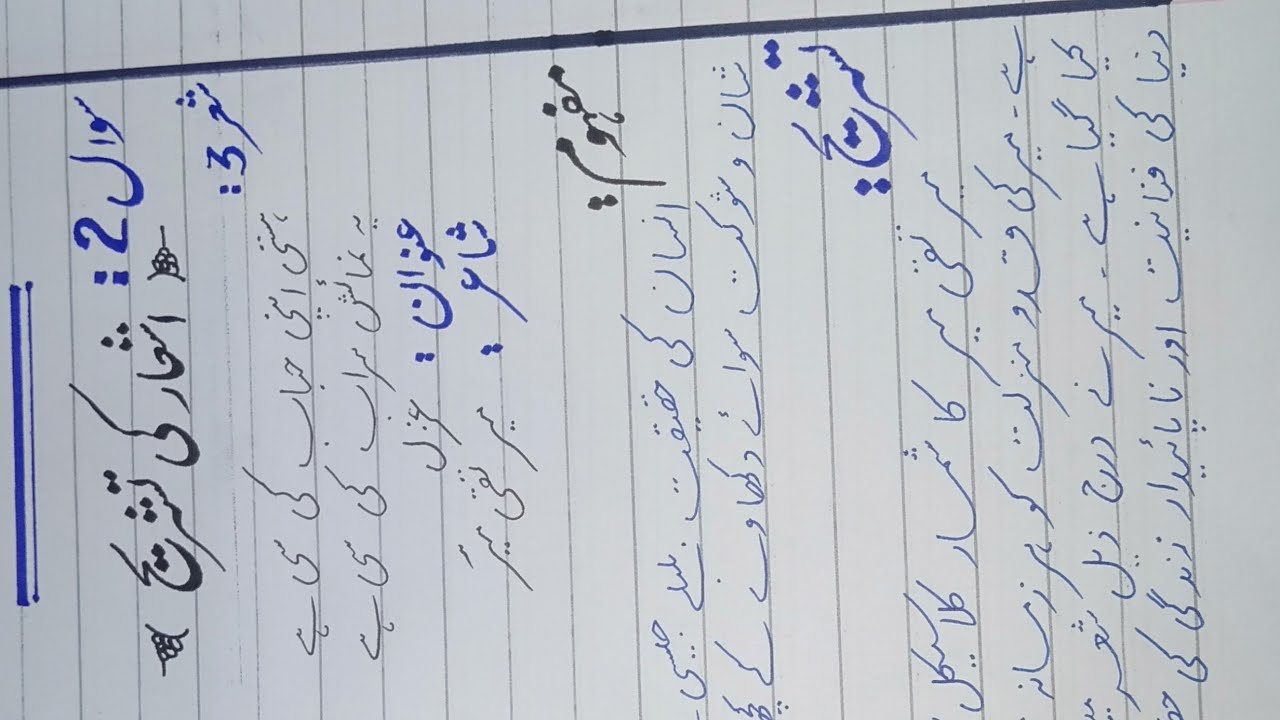 سوال 2:
اشعار کی تشریح
شعر 3:
ہستی اپنی حباب کی سی ہے
یہ نمائش سراب کی سی ہے
عنوان: غزل
شاعر: میر تقی میر
مفہوم:
انسان کی حقیقت بلبلے جیسی
شان و شوکت سوائے دکھاوے کے
تشریح:
میر تقی میر کا شمار کلاسیکل
ہے۔ میر کی قدر و منزلت کو ہر زمانہ
کیا گیا ہے۔ میر نے درج ذیل شعر
دنیا کی فانیت اور ناپائیدار زندگی کی